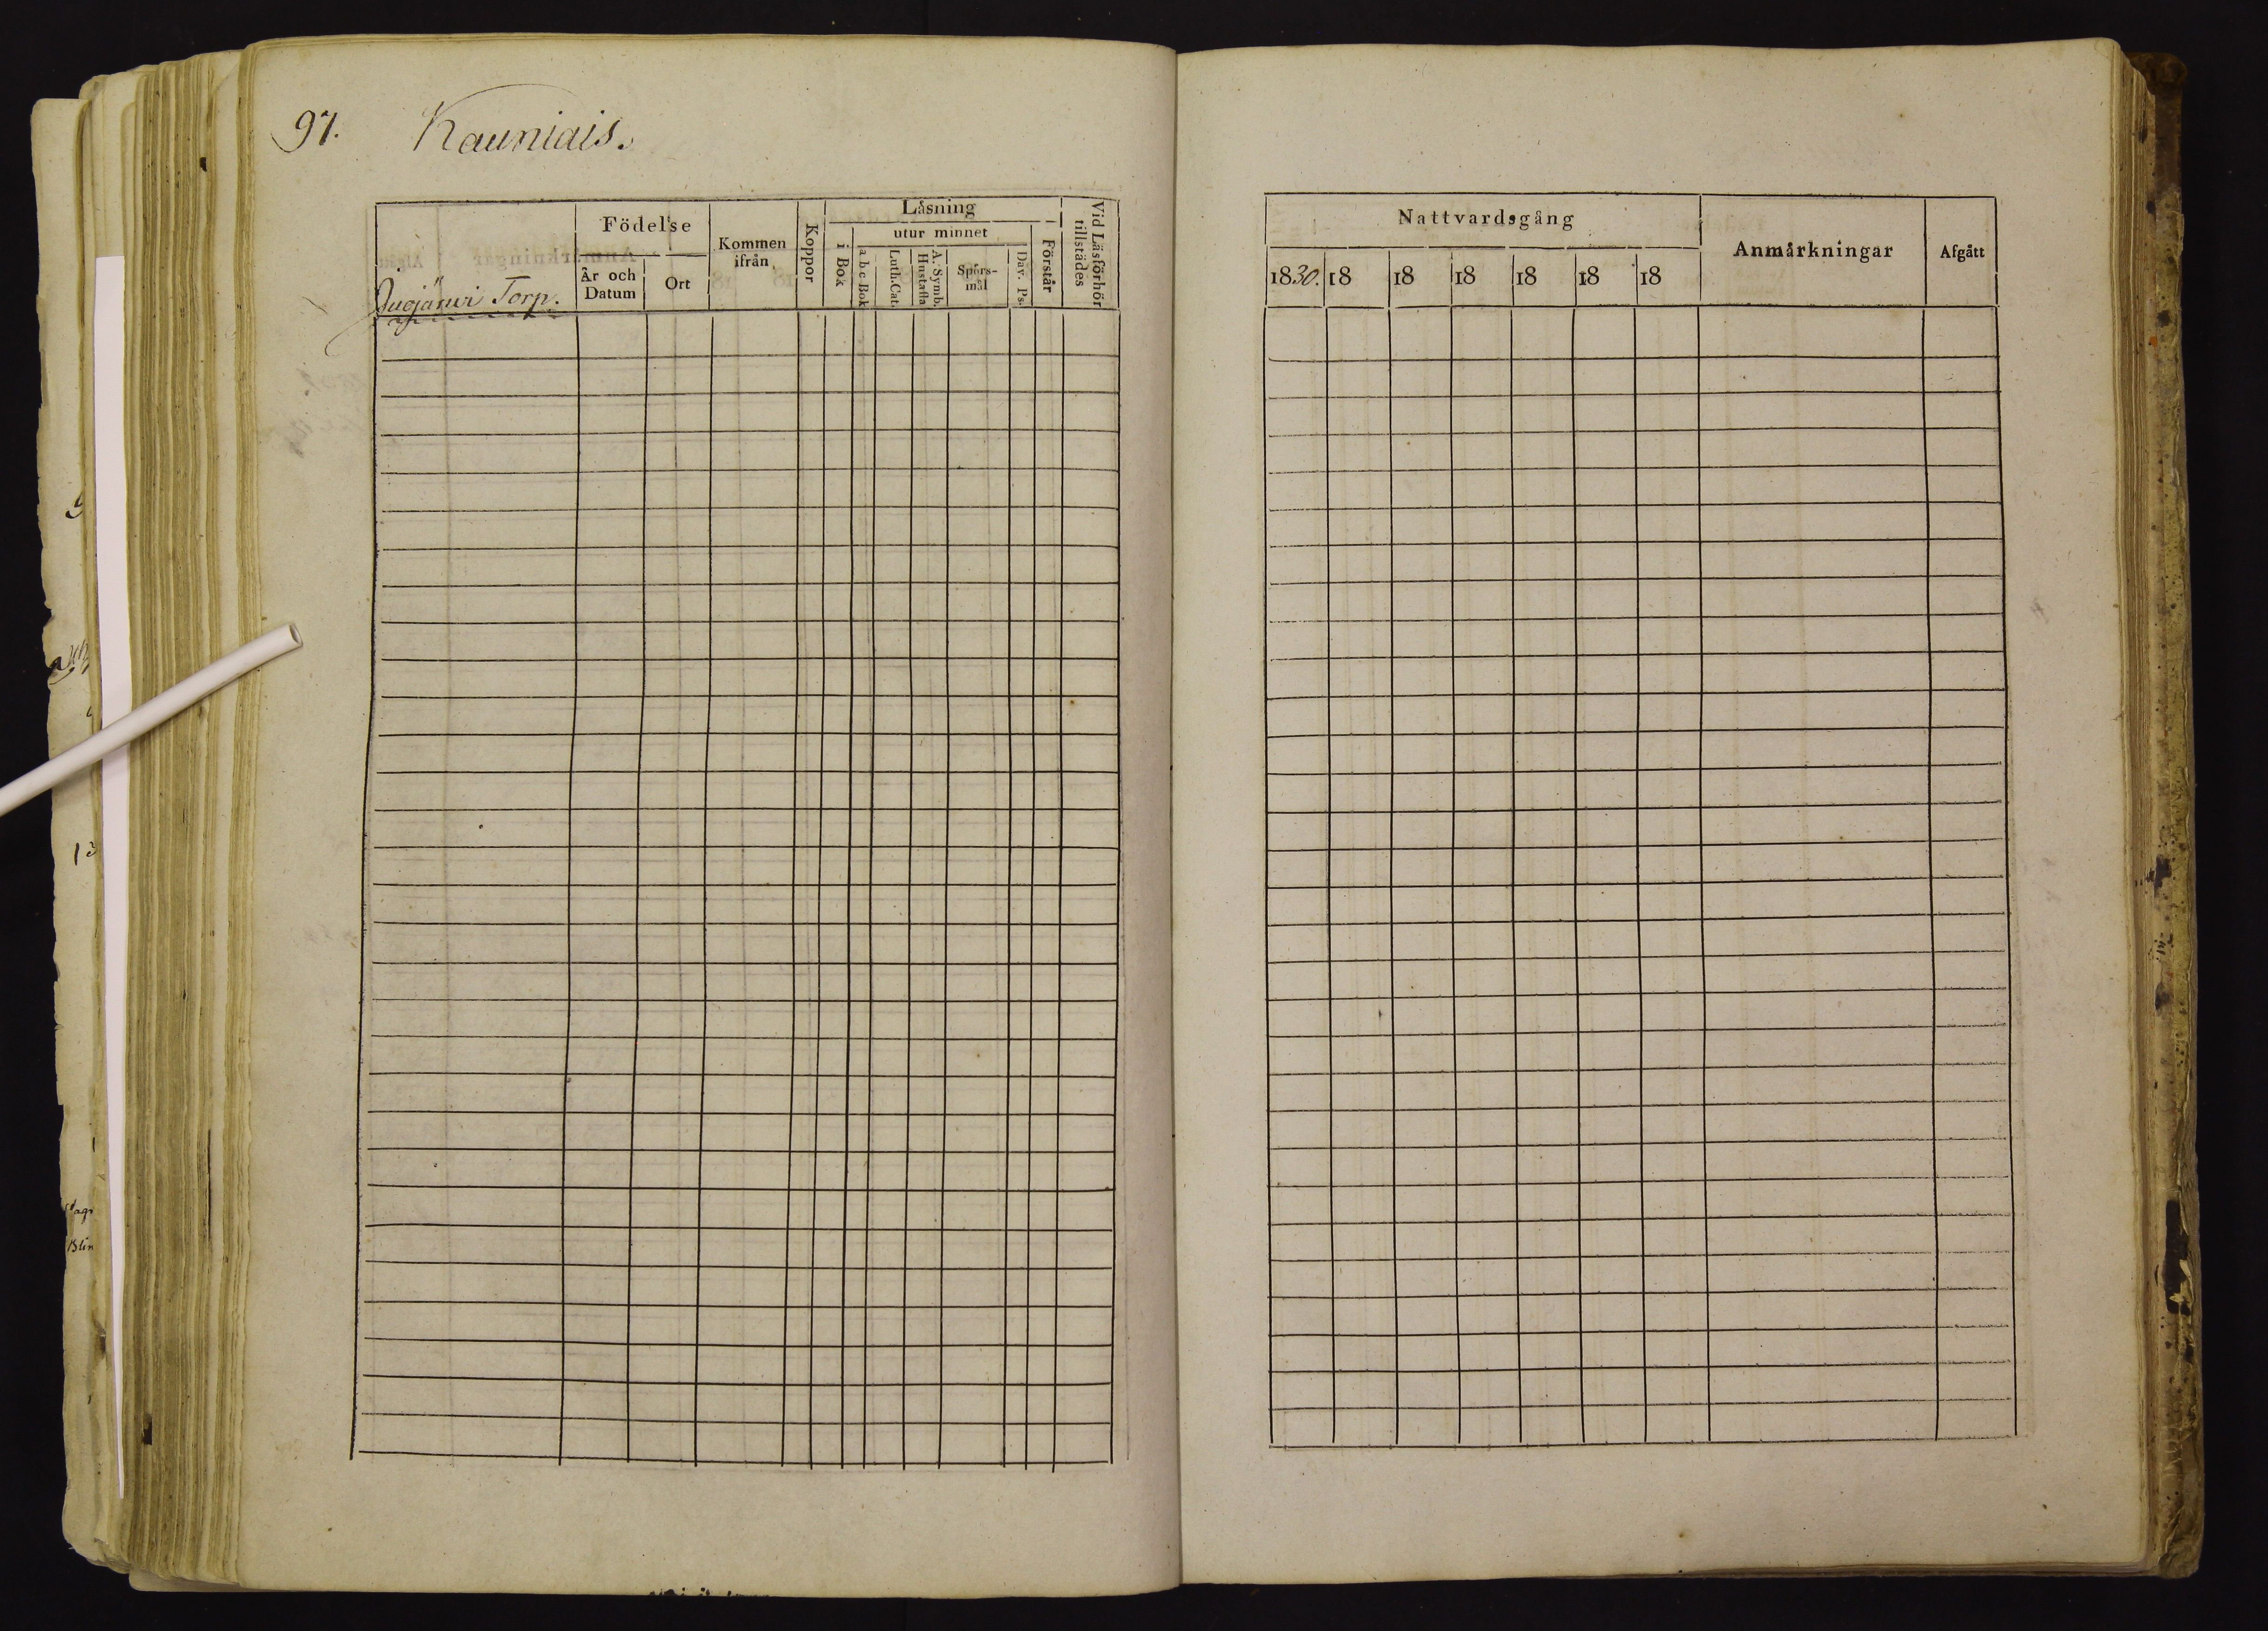 97. Kauniais.
Födelse
År och Datum
Ort
Kommen ifrån
Koppor
Läsning
i Bok
utur minnet
a b c Bok
Luth. Cat.
A. Symb. Hustafla
Spörs-
mål
Dav. Ps.
Förstår
Vid Läsförhör tillstädes
Torp.
Nattvardsgång
1830. 18 18 18 18 18 18
Anmärkningar
Afgått